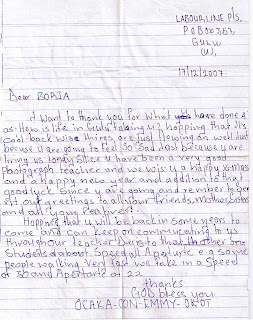 LABOURLINE P/S.
P.O BOX 353,
GULU,
(U).
17/12/2007.
Dear BORJA
I Want to thank you for What you have done
as: How is life in Gulu taking u? hopping that it's
cool back wise things are just flowing on well just
because u are going to feel So Sad Just because y are
living us today Since u have been a very good
photograph teacher and we wish u a happy X-mas
and a happy new year and addition to that
good luck. Since y are going and remember to be
ext out greetings to all your friends, Mother, Sisters
and all your Reatives!
Hopping that u will be back in some years to
come and can keep on communicating to us
through our teacher Denis to that another
Students about Speed all Aperture e.g some
people walking Very fast we take in a Speed
of 30 and Apertaric of 22
thanks
GOD bless you
OCAKA-CON-EMMY-OKOT